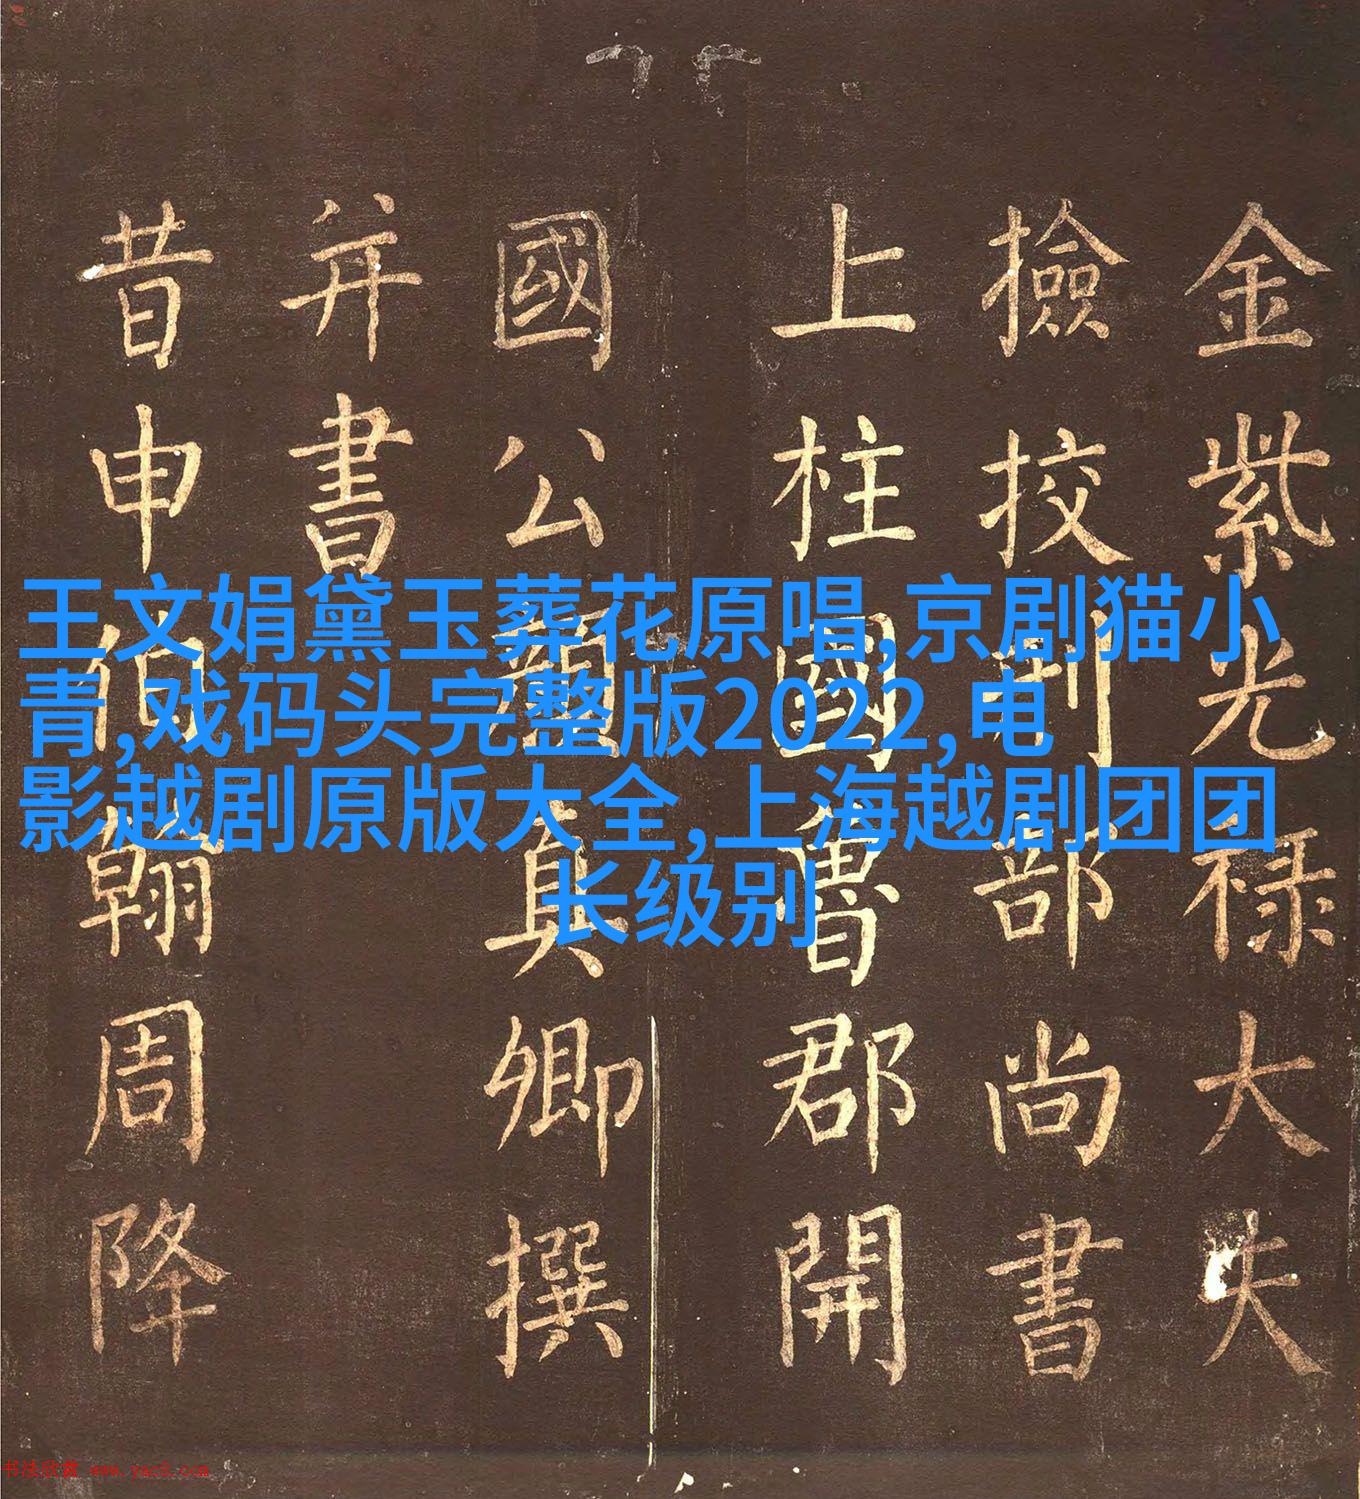 金紫光禄大夫
撿挍刑部尚書
上柱國魯郡開
國公顔真卿撰
并書
昔申伯翰周降
王文娟黛玉葬花原唱,京剧猫小
青,戏码头完整版2022,电
影越剧原版大全,上海越剧团团
长级别
书法欣赏 www.yac8.com